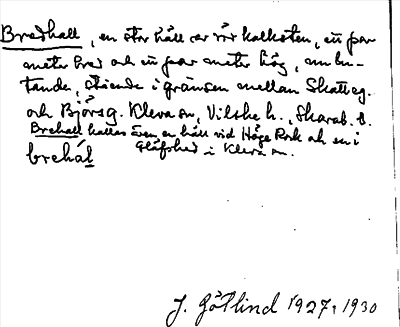 Bredhall, en stor häll av röd kalksten, ett par
meter bred och ett par meter hög, num lu-
tande, stående i gränsen mellan Skatteg.
och Björsg. Kleva sn, Vilske h., Skarab. l.
Brehall kallas även en häll vid Höge Rok och en i
Gläfshed i Kleva sn.
brehál
J. Götlind 1927, 1930